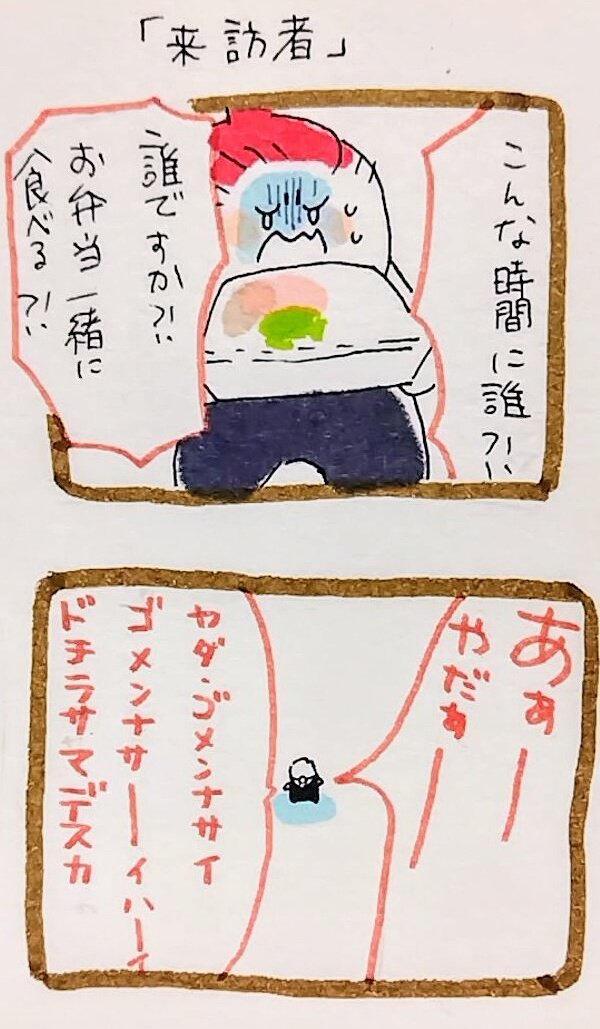 「来訪者」
こんな時間に誰?!!
誰ですか?!!
お弁当一緒に
食べる?!!
あぁー
やだぁー
ヤダ・ゴメンナサイ
ゴメンナサーイハーイ
ドチラサマデスカ